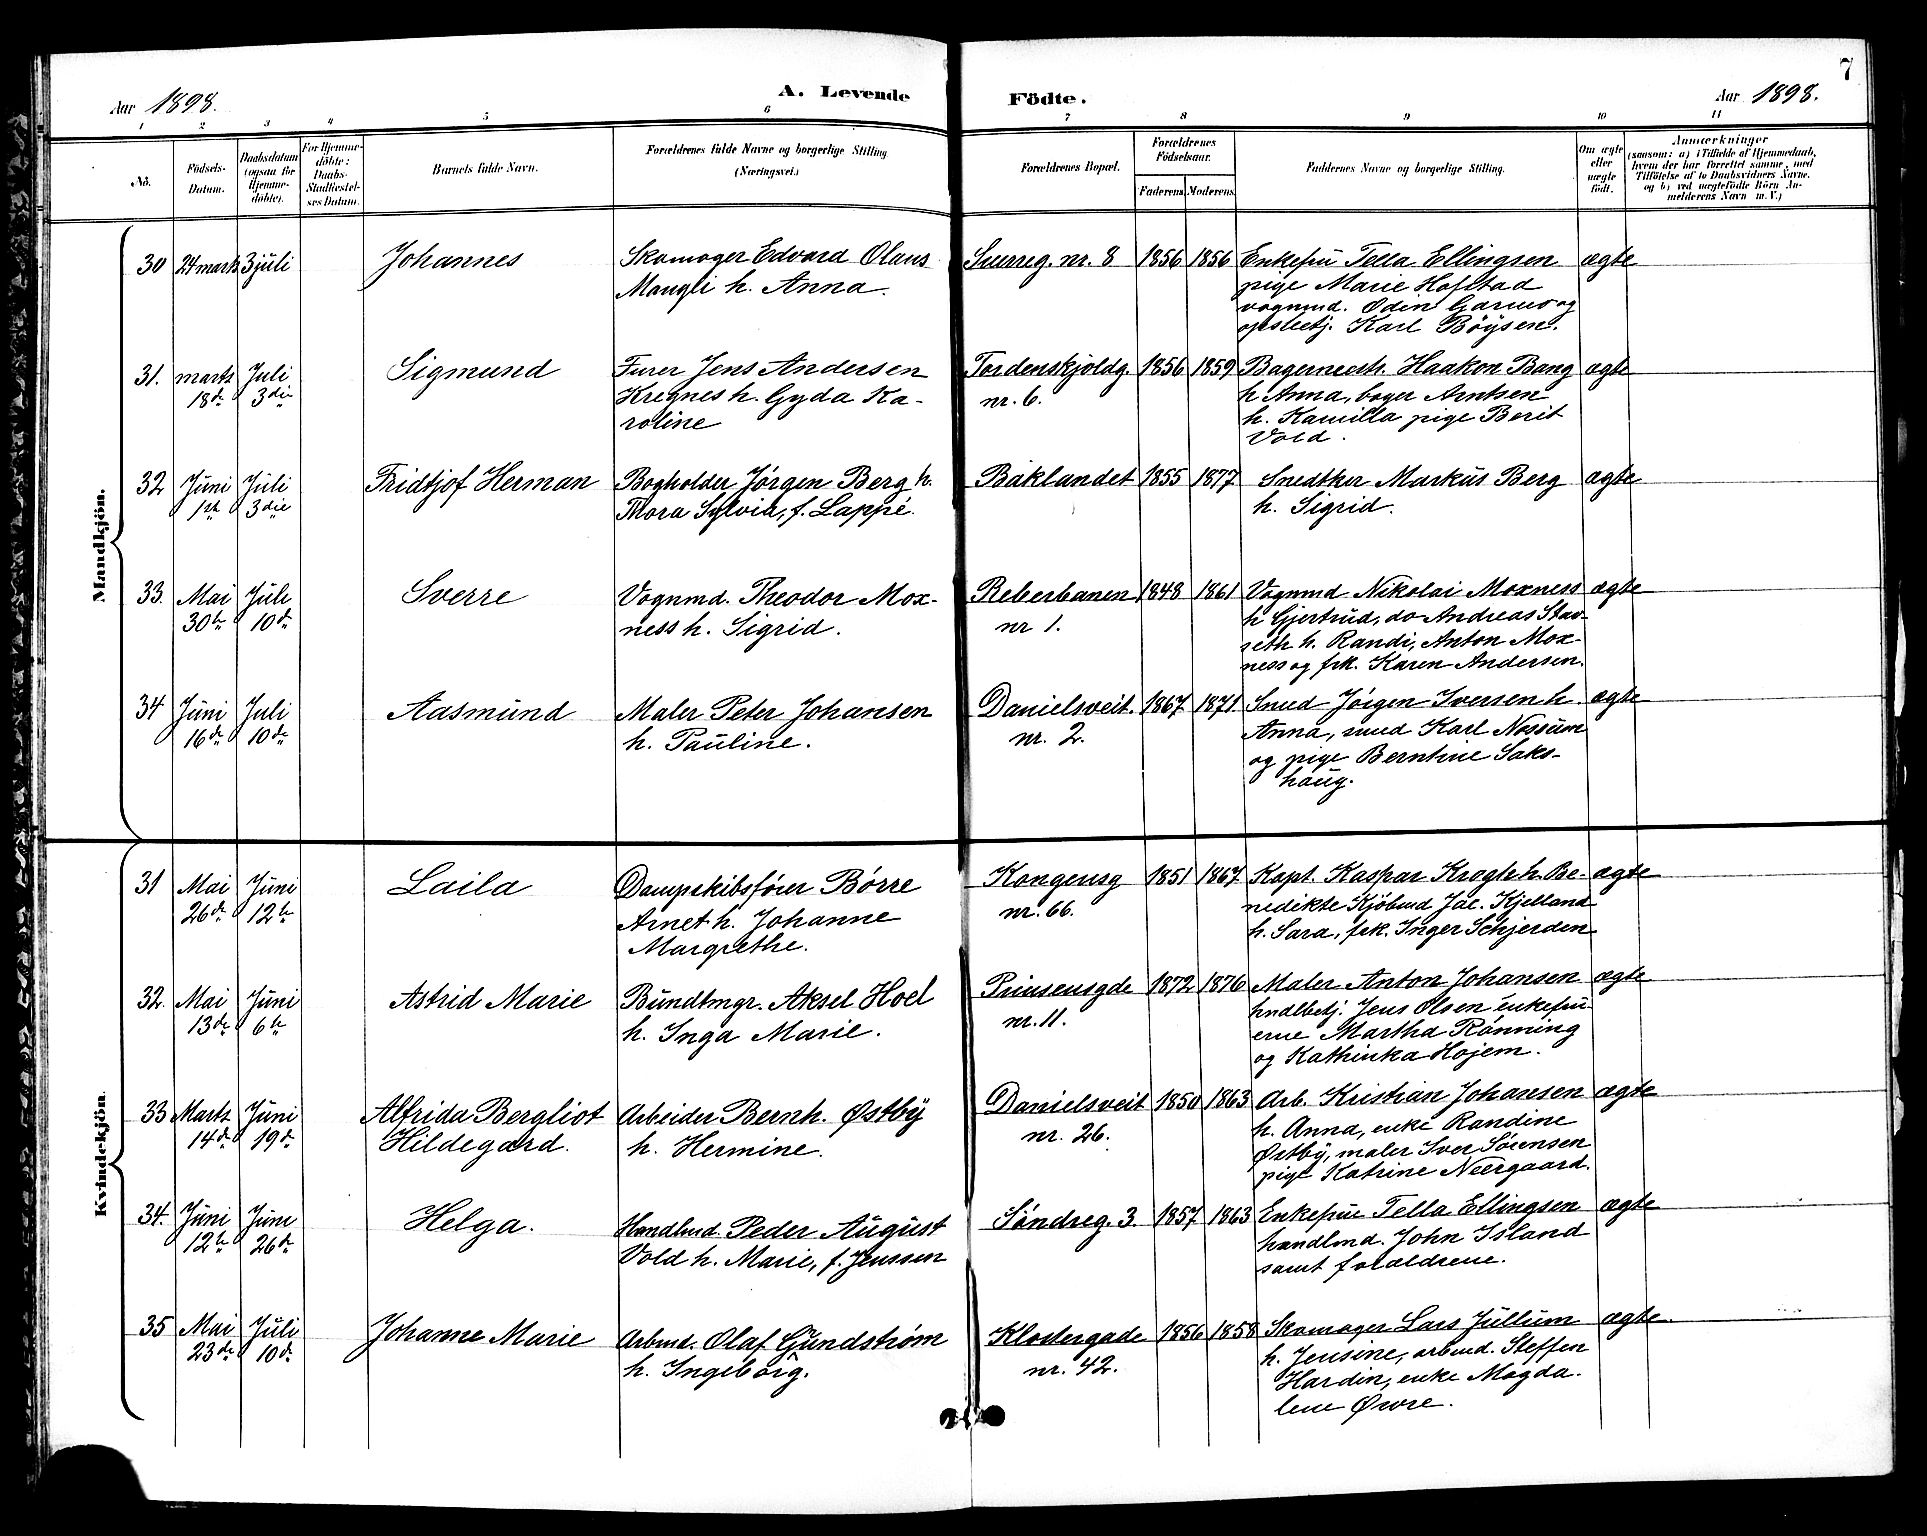 7
Aar 1898. A. Levende Födte. Aar 1898.
1 2 3 4 5 6 7 8 9 10 11
No.
Födsels-
Datum.
Daabsdatum
(ogsaa for
Hjemme-
döbte).
For Hjemme-
döbte:
Daabs-
Stadfæstel-
ses Datum.
Barnets fulde Navn.
Forældrenes fulde Navne og borgerlige Stilling
(Næringsvei.)
Forældrenes Bopæl.
Forældrenes
Födselsaar.
Faderens. Moderens.
Faddernes Navne og borgerlige Stilling.
Om ægte
eller
uægte
födt.
Anmærkninger
(saasom: a) i Tilfælde af Hjemmedaab,
hvem der har forrettet samme, med
Tilföielse af to Daabsvidners Navne.
og b) ved uægtefödte Börn An-
melderens Navn m. V.)
Mandkjön.
30 24 marts 3 juli Johannes
Skomager Edvard Olaus
Mangli h. Anna.
nr. 8 1856 1856
Enkefru Tella Ellingsen
pige Marie Hofstad
vognmd. Odin Garmo og
Karl Böysen.
ægte
31. marts
18de
Juli
3die
Sigmund
Furer Jens Andersen
Kregnes h. Gyda Ka-
roline
Tordenskjoldg.
nr. 6.
1856 1859
Haakon Bang
h Anna, bager Arntsen
h. Kamilla pige Berit
Vold.
ægte
32 Juni
1ste
Juli
3die
Fridtjof Herman
Bogholder Jørgen Berg h.
Thora Sylvia, f. Lappé.
Baklandet 1855 1877
Snedker Markus Berg
h. Sigrid.
ægte
33. Mai
30te
Juli
10de
Sverre
Vognmd. Theodor Mox-
ness h. Sigrid.
Reberbanen
nr 1.
1848 1861
Vognmd Nikolai Moxness
h Gjertrud, do Andreas Stav-
seth h. Randi, Anton Mox-
ness og frk. Karen Andersen.
ægte
34 Juni
16de
Juli
10de
Aasmund
Maler Peter Johansen
h. Pauline.
Danielsveit.
nr. 2.
1867 1871.
Smed Jörgen Iversen h.
Anna, smed Karl Nossum
og pige Berntine Saks-
haug.
ægte
Kvindekjön.
31 Mai
26de
Juni
12te
Laila
Dampskibsfører Børre
Arnet h. Johanne
Margrethe.
Kongensg
nr. 66.
1851 1867
Kapt. Kaspar Krogh h. Be-
nedikte Kjöbmd Jac. Kjelland
h. Sara, frk. Inger Schjerden
ægte
32. Mai
13de
Juni
6te
Astrid Marie
Bundtmgr. Aksel Hoel
h. Inga Marie.
Prinsensgde
nr. 11.
1872 1876
Maler Anton Johansen
hndlbetj. Jens Olsen enkefru-
erne Martha Rønning
og Kathinka Hojem.
ægte
33 Marts
14de
Juni
19de
Alfrida Bergliot
Hildegard.
Arbeider Bernh. Østby
h. Hermine.
Danielsveit
nr. 26.
1850 1863
Arb. Kristian Johansen
h. Anna, enke Randine
Østby, maler Iver Sörensen
pige Katrine Neergaard.
ægte
34. Juni
12te
Juni
26de
Helga.
Handlmd. Peder August
Vold h. Marie, f. Jenssen
Söndreg. 3. 1857 1863
Enkefrue Tella Ellingsen
handlmd. John Island
samt forældrene.
ægte
35 Mai
23de
Juli
10de
Johanne Marie
Arbmd. Olaf Gundstrøm
h. Ingeborg.
Klostergade
nr. 42.
1856 1858
Skomager Lars Jullum
h. Jensine, arbmd. Steffen
Hardin, enke Magda-
lene Øvre.
ægte.